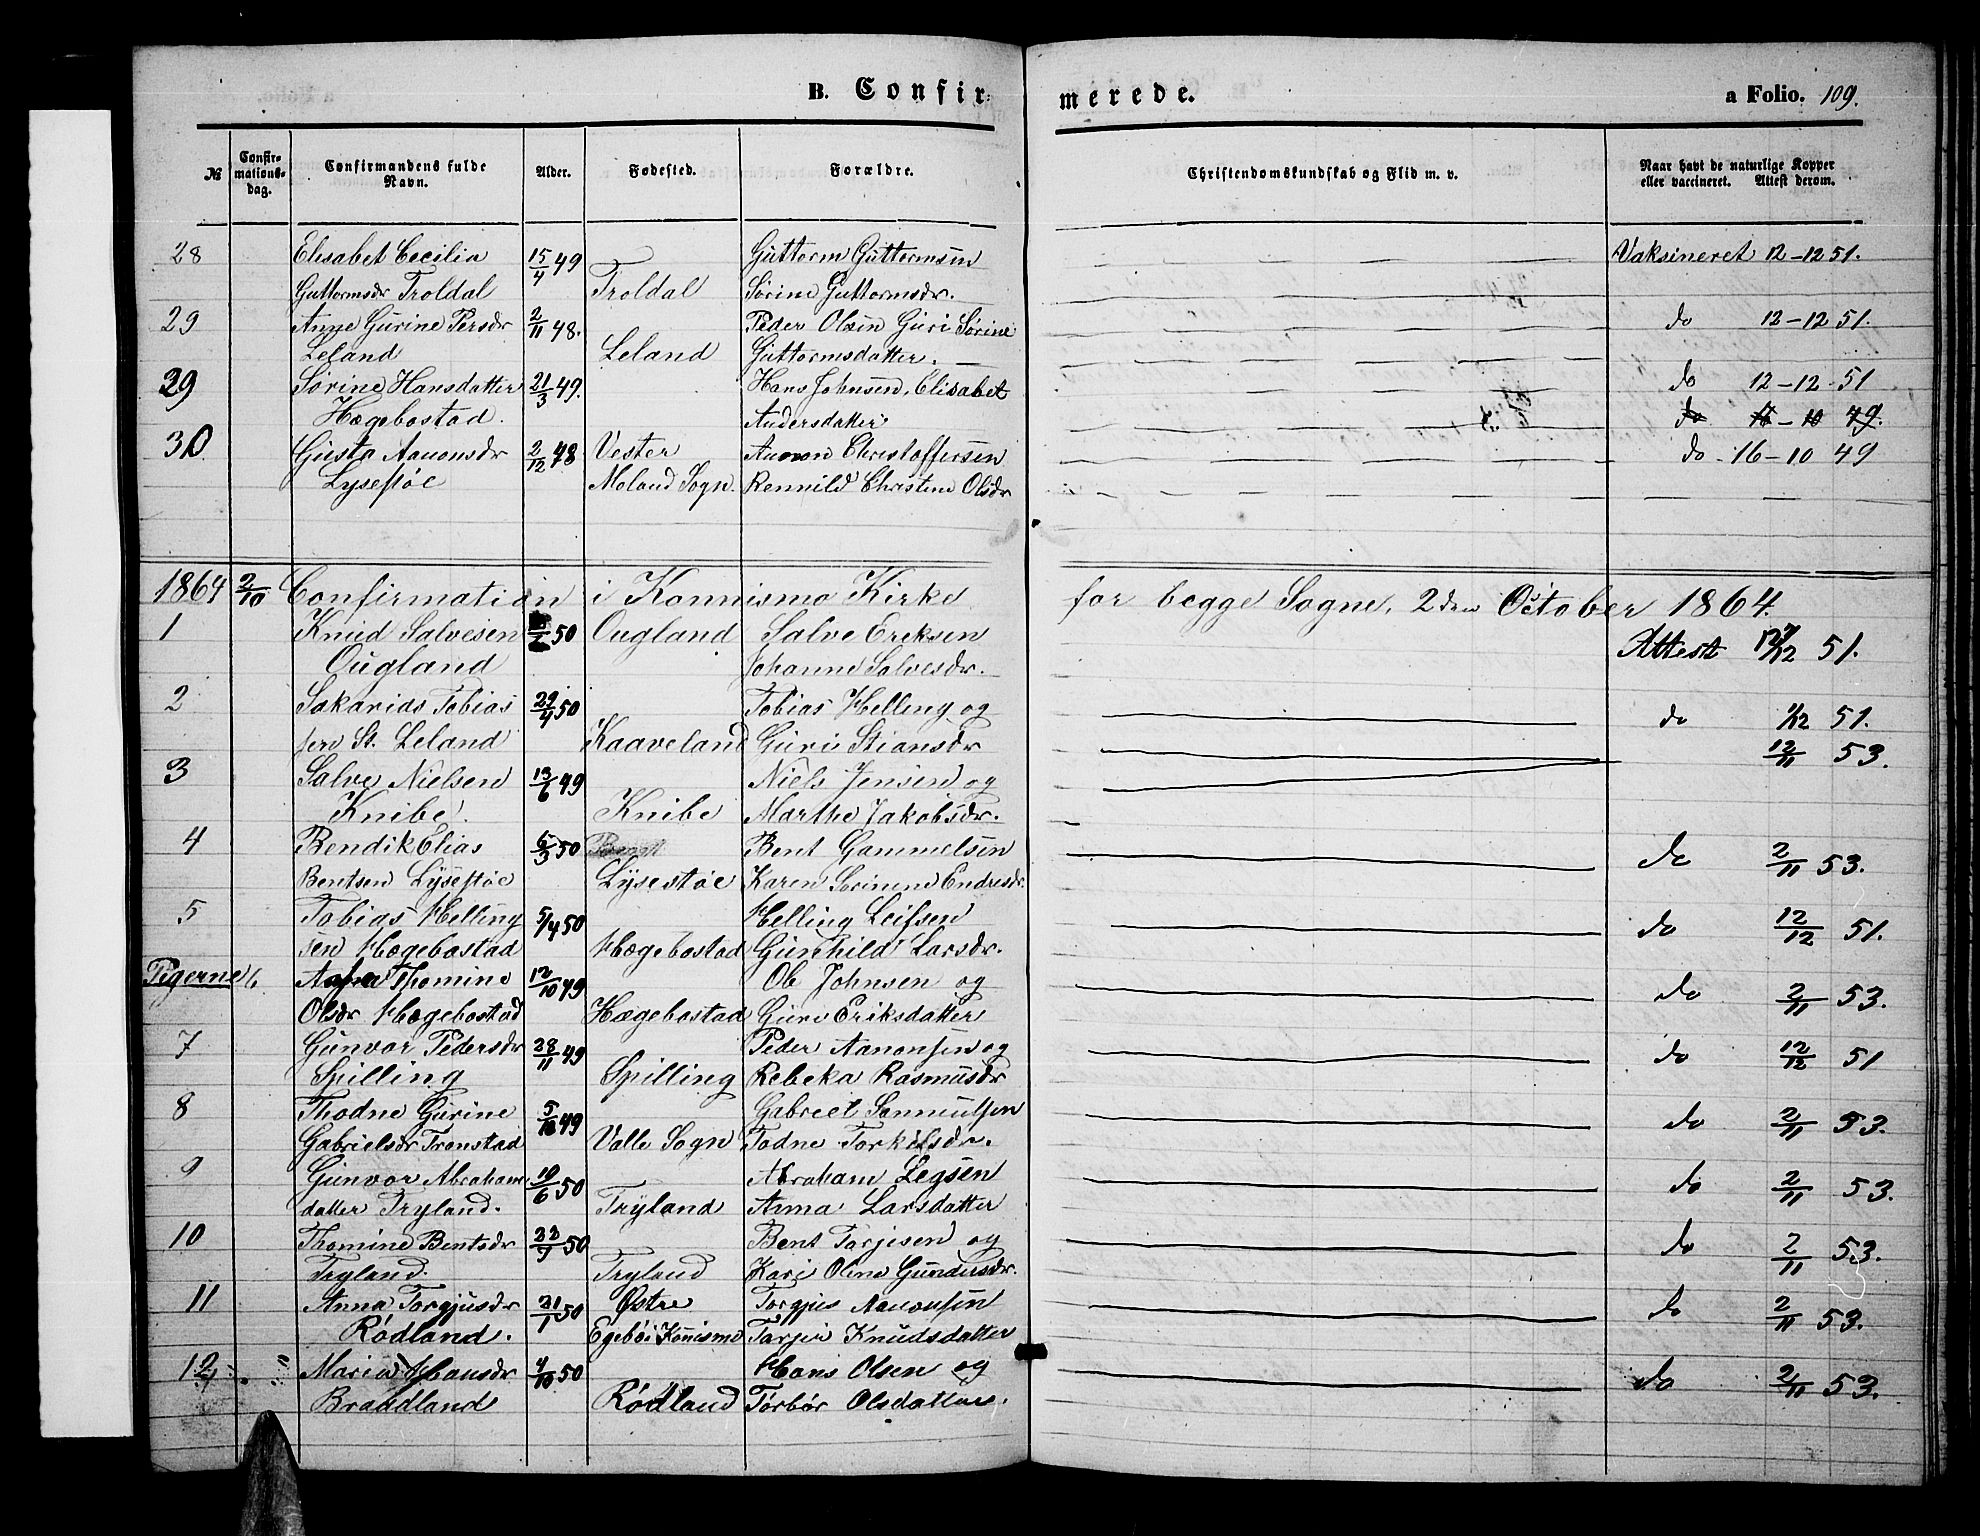 B. Confir-
merede.
a Folio. 109.
№
Confir-
mations-
dag.
Confirmandens fulde
Navn.
Alder.
Fødested.
Forældre.
Christendomskundskab og Flid m. v.
Naar havt de naturlige Kopper
eller vaccineret. Attest derom.
28 Elisabet Cecilia 15/4 49 Guttorm Guttormsen Vaksineret 12-12 51.
Guttormsdr Troldal Troldal Sørine Guttormsdr.
29 Anne Gurine Persdr 2/11 48. Peder Olsen Guri Sørine do 12-12 51.
Leland Leland Guttormsdatter.
29 Sørine Hansdatter 21/3 49. Hans Johnsen, Elisabet do 12-12-51
Hægebostad. Andersdatter do 49.
30 Gusta Aanonsdr 2/12 48 Vester Aanon Christoffersen do 16-10 49
Lysestøe Moland Sogn. Rennild Christine Olsdr
1864 2/10 Confirmation i Konnismo Kirke for begge Sogne, 2den October 1864.
1 Knud Salvesen 50 Ougland Salve Ereksen Attest 12/12 51.
Ougland Johanne Salvesdr.
2 Sakarias Tobias 29/4 50 Tobias Helling og do 1/12 51.
sen St. Leland Kaaveland Guri Stiansdr 12/11 53.
3 Salve Nielsen 13/6 49 Niels Jensen og
Knibe Knibe Marthe Jakobsdr.
4 Bendik Elias 6/3 50 Bent Gammelsen do 2/11 53.
Bentsen Lysestøe Lysestøe Karen Sørine Endresdr
5 Tobias Helling 5/4 50 Helling Leifsen do 12/12 51.
sen Hægebostad Hægebostad Gunhild Larsdr.
Pigerne 6. Thomine 12/10 49 Ole Johnsen og do 2/11 53.
Olsdr Hægebostad Hægebostad Guri Eriksdatter
7 Gunvor Pedersdr 28/11 49 Peder Aanonsen og do 12/12 51
Spilling Spilling Rebeka Rasmusdr
8 Thodne Gurine 5/10 49 Gabriel Sammuelsen do 2/11 53.
Gabrielsdr Tronstad Valle Sogn Todne Torkelsdr.
9 Gunvor Abraham 10/6 50 Abraham Legsen do 2/11 53.
datter Tryland. Tryland Anna Larsdatter
10 Thomine Bentsdr 23/7 50 Bent Tarjesen og do 2/11 53.
Tryland. Tryland Kari Olene Gundersdr.
11 Anna Torgjusdr 21/1 50 Østre Torgjus Aanonsen do 2/11 53.
Rødland. Egebøi Konismo Tarjer Knudsdatter
12 Maria Hansdr 4/10 50 Hans Olsen og do 2/11 53.
Braudland Rødland Torbør Olsdatter.